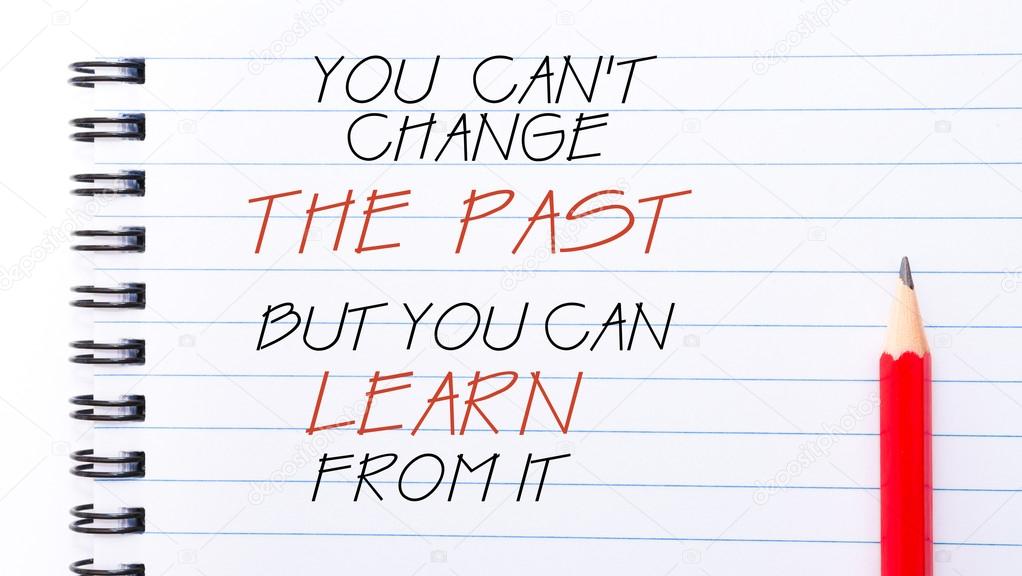 YOU CAN'T
CHANGE
THE PAST
BUT YOU CAN
LEARN
FROM IT
depositphotos